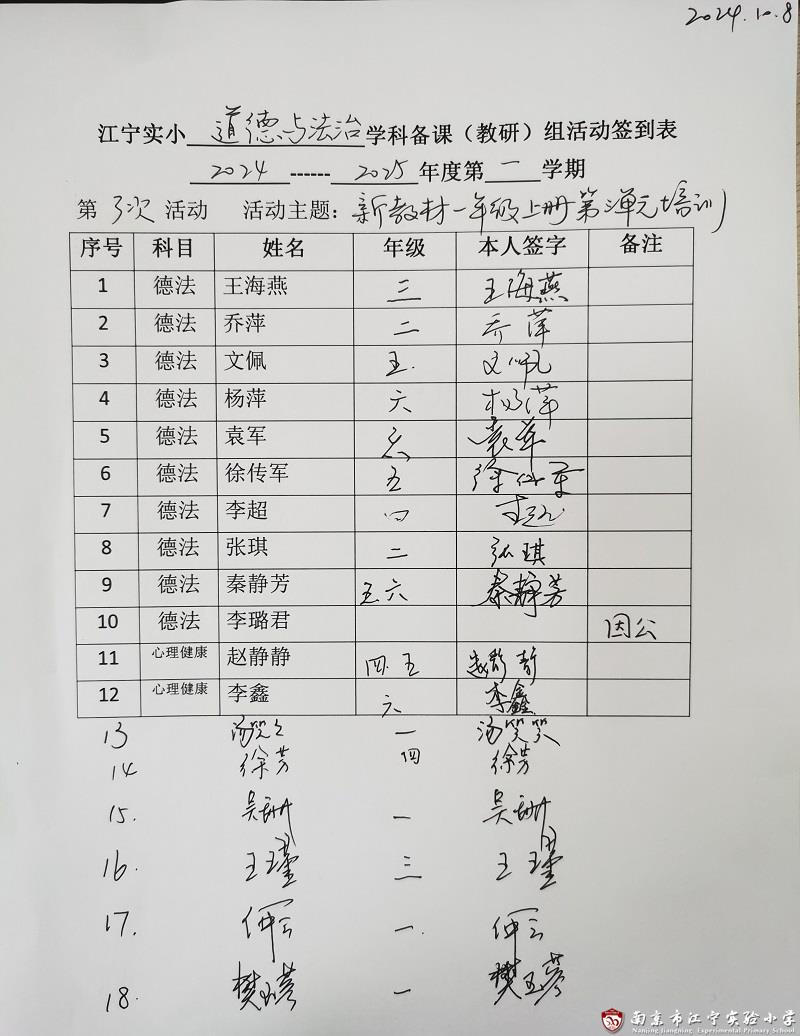 2024.10.8
江宁实小 道德与法治 学科备课（教研）组活动签到表
2024 ------ 2025 年度第 一 学期
第 3次 活动 活动主题：新教材一年级上册第二单元培训
序号 科目 姓名 年级 本人签字 备注
1 德法 王海燕 三 王海燕
2 德法 乔萍 二 乔萍
3 德法 文佩 五. 文佩
4 德法 杨萍 六 杨萍
5 德法 袁军 六 袁军
6 德法 徐传军 五 徐传军
7 德法 李超 四 李超
8 德法 张琪 二 张琪
9 德法 秦静芳 五六 秦静芳
10 德法 李璐君 因公
11 心理健康 赵静静 四.五 赵静静
12 心理健康 李鑫 六 李鑫
13 汤笑笑 一 汤笑笑
14 徐芳 四 徐芳
15. 吴珊 一 吴珊
16. 王瑾 三 王瑾
17. 仲云 一. 仲云
18. 樊玉蓉 一 樊玉蓉
南京市江宁实验小学
Nanjing Jiangning Experimental Primary School